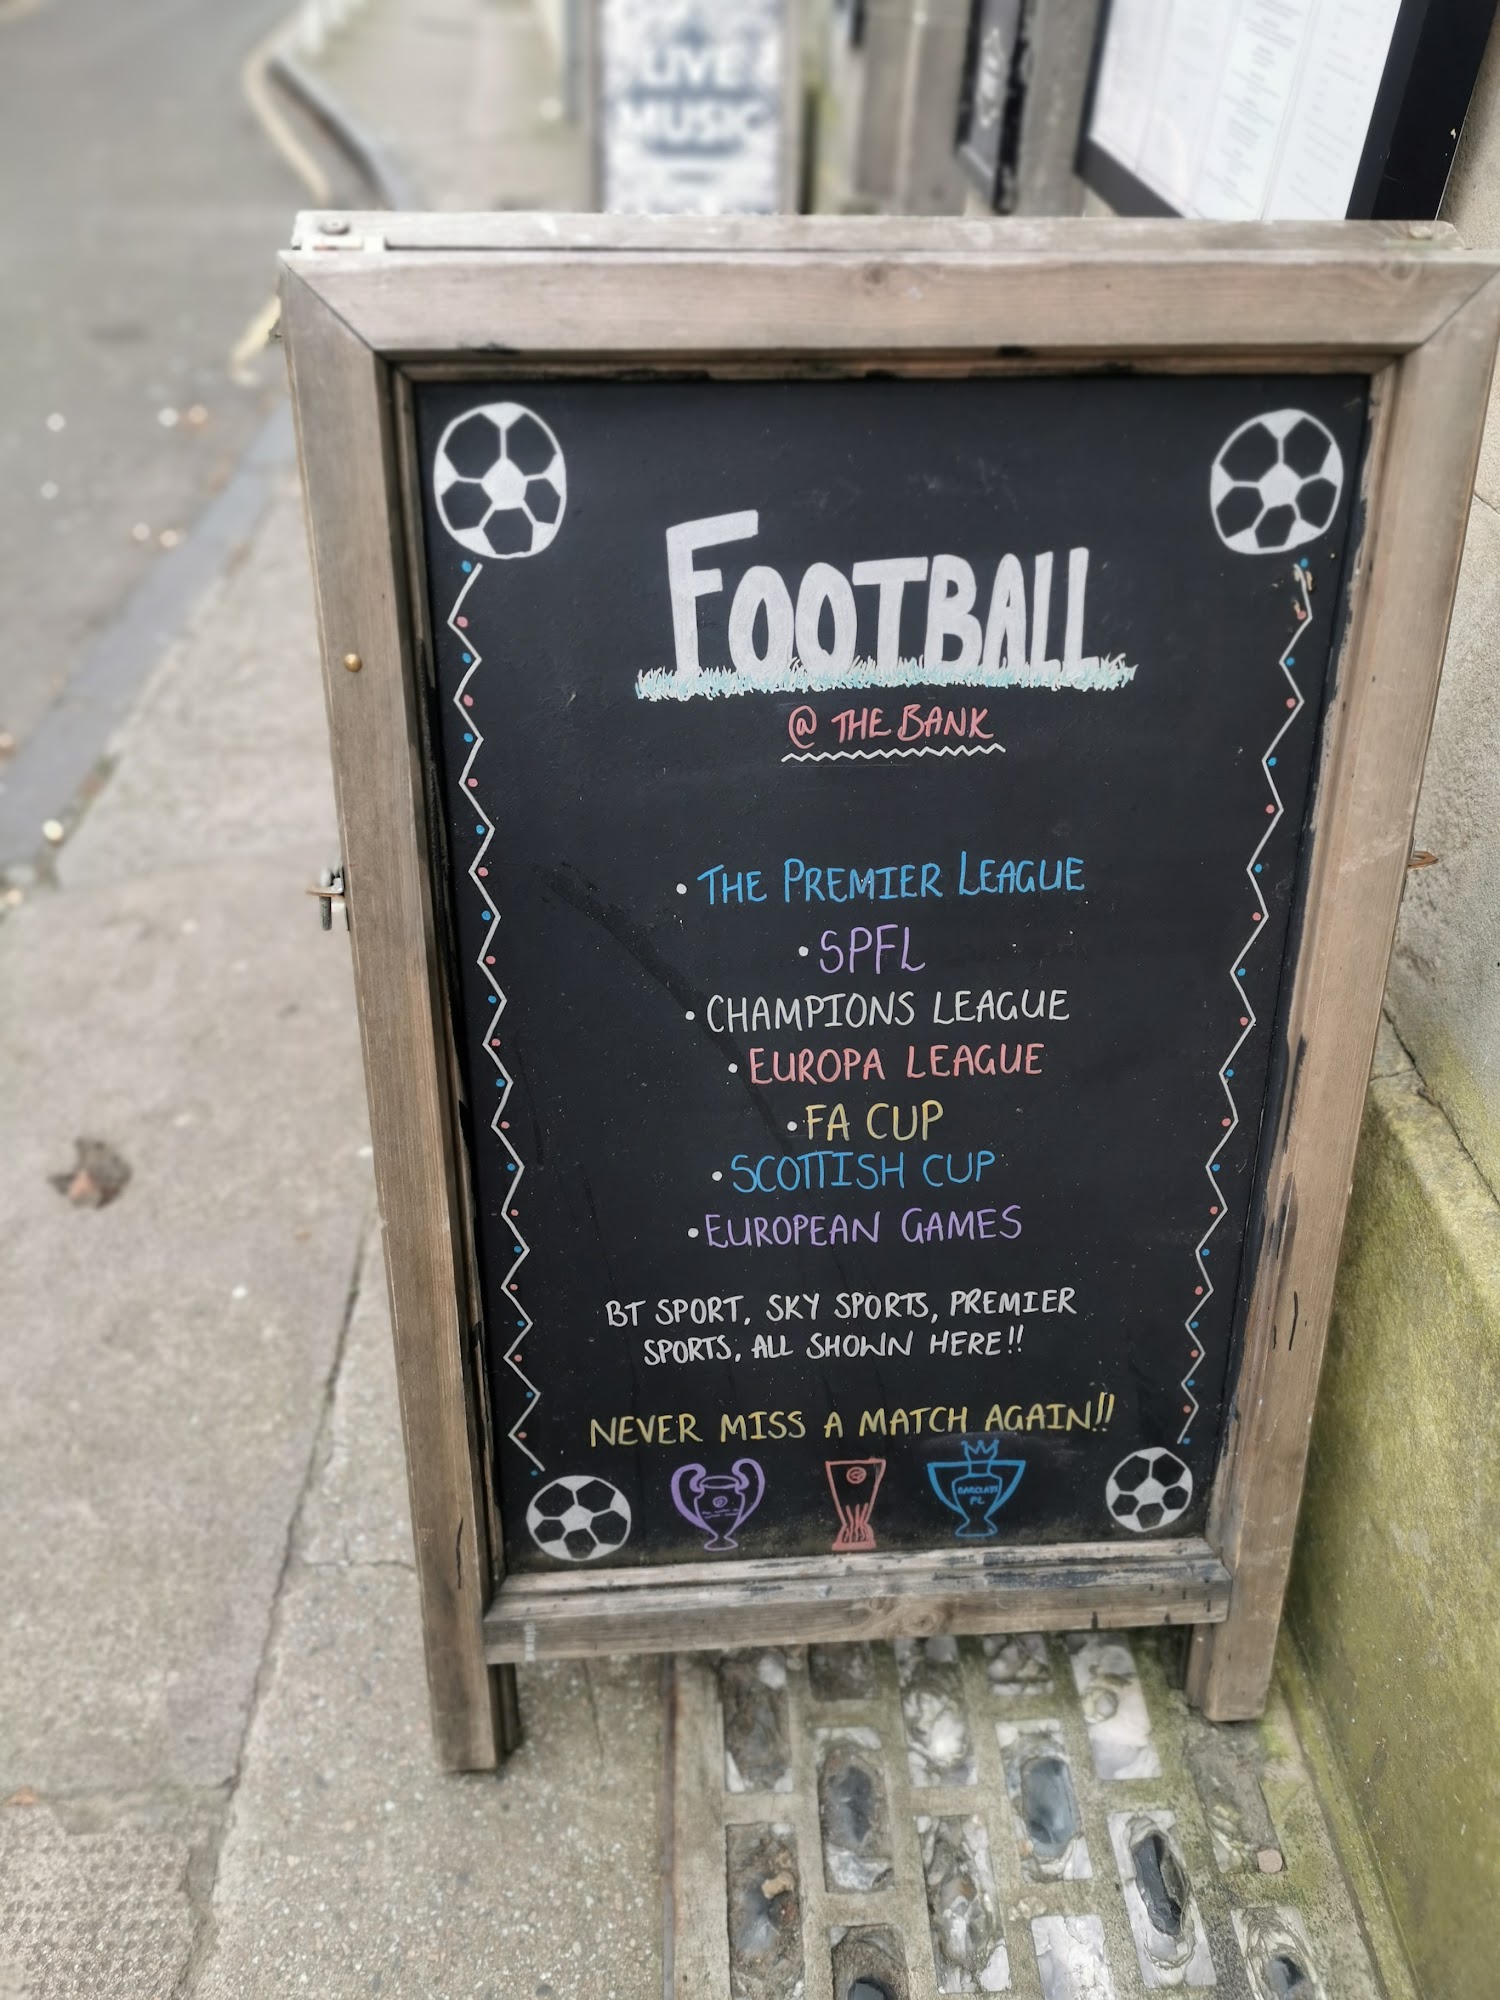 LIVE
MUSIC
FOOTBALL
@ THE BANK
• THE PREMIER LEAGUE
• SPFL
• CHAMPIONS LEAGUE
• EUROPA LEAGUE
• FA CUP
• SCOTTISH CUP
• EUROPEAN GAMES
BT SPORT, SKY SPORTS, PREMIER
SPORTS, ALL SHOWN HERE!!
NEVER MISS A MATCH AGAIN!!
BARCLAYS
PL